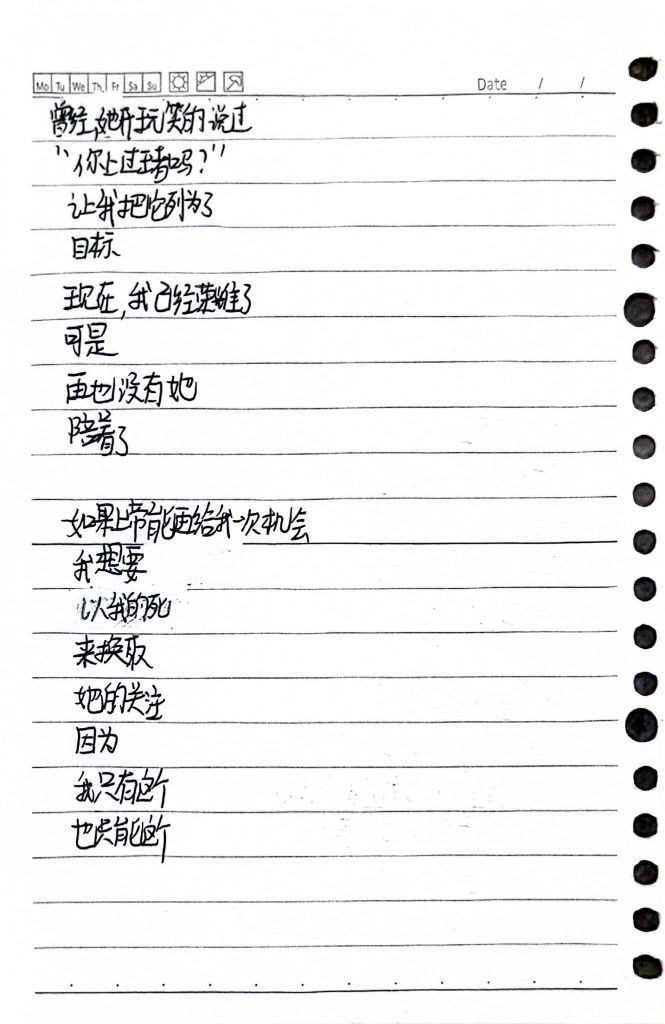 Mo Tu We Th Fr Sa Su Date / /
曾经,她开玩笑的说过
“你上过王者吗?”
让我把它列为了
目标
现在,我已经荣耀了
可是
再也没有她
陪着了
如果上帝能再给我一次机会
我想要
以我的死
来换取
她的关注
因为
我只有这个
也只能这个